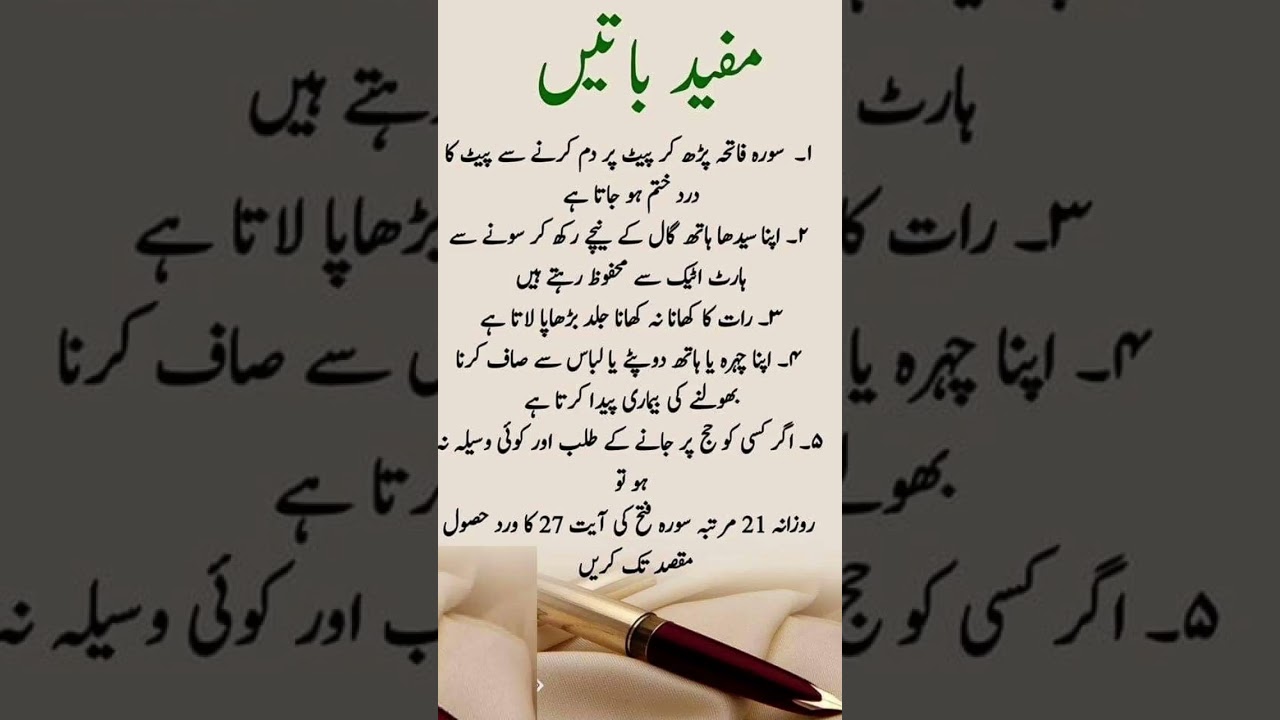 مفید باتیں
۱۔ سورہ فاتحہ پڑھ کر پیٹ پر دم کرنے سے پیٹ کا
درد ختم ہو جاتا ہے
۲۔ اپنا سیدھا ہاتھ گال کے نیچے رکھ کر سونے سے
ہارٹ اٹیک سے محفوظ رہتے ہیں
۳۔ رات کا کھانا نہ کھانا جلد بڑھاپا لاتا ہے
۴۔ اپنا چہرہ یا ہاتھ دوپٹے یا لباس سے صاف کرنا
بھولنے کی بیماری پیدا کرتا ہے
۵۔ اگر کسی کو حج پر جانے کے طلب اور کوئی وسیلہ نہ
ہو تو
روزانہ 21 مرتبہ سورہ فتح کی آیت 27 کا ورد حصول
مقصد تک کریں